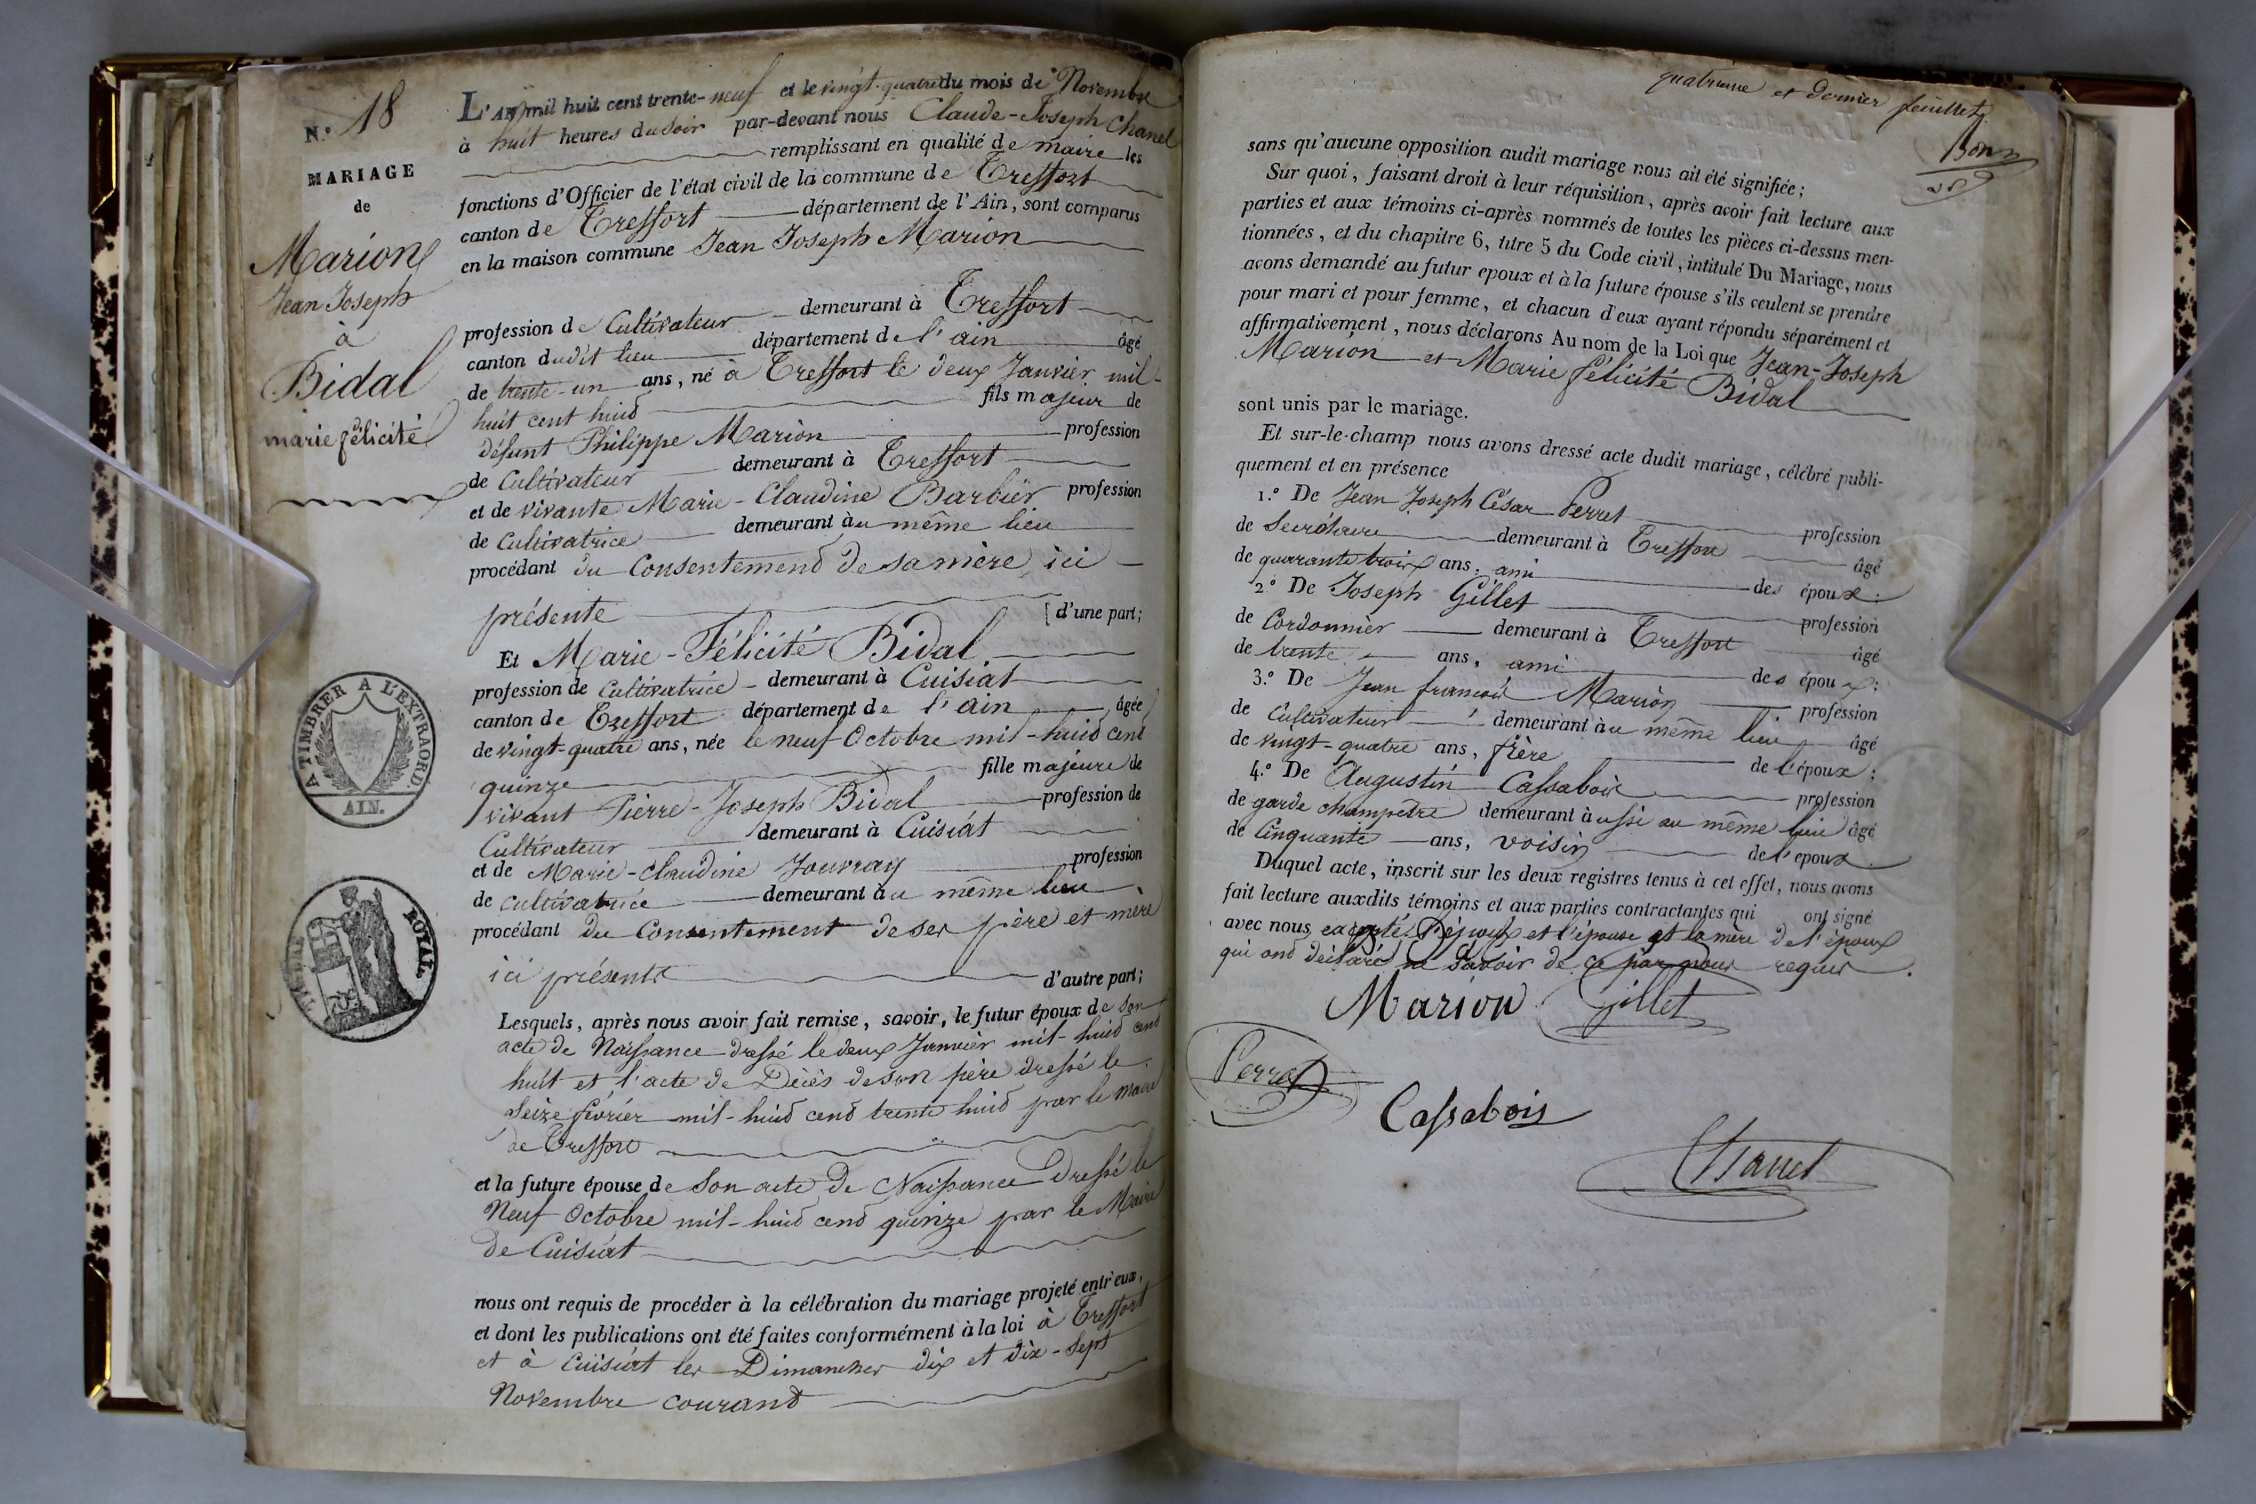 N.º 18
MARIAGE
de
Marion
Jean Joseph
à
Bidal
marie félicité
A TIMBRER A L'EXTRAORD.
AIN.
TIMBRE ROYAL.
L'AN mil huit cent trente-neuf et le vingt-quatre du mois de Novembre
à huit heures du soir par-devant nous Claude-Joseph Chanel
remplissant en qualité de maire les
fonctions d'Officier de l'état civil de la commune de Treffort
canton de Treffort département de l'Ain, sont comparus
en la maison commune Jean Joseph Marion
profession de Cultivateur demeurant à Treffort
canton dudit lieu département de l'ain âgé
de trente-un ans, né à Treffort le deux Janvier mil-
huit cent huit fils majeur de
défunt Philippe Marion profession
de Cultivateur demeurant à Treffort
et de vivante Marie-Claudine Barbier profession
de Cultivatrice demeurant au même lieu
procédant du Consentement de sa mère, ici
présente d'une part;
Et Marie-Félicité Bidal
profession de Cultivatrice demeurant à Cuisiat
canton de Treffort département de l'ain âgée
de vingt-quatre ans, née le neuf Octobre mil-huit cent
quinze fille majeure de
vivant Pierre-Joseph Bidal profession de
Cultivateur demeurant à Cuisiat
et de Marie-Claudine Jouvray profession
de cultivatrice demeurant au même lieu
procédant du Consentement de ses père et mère
ici présents d'autre part;
Lesquels, après nous avoir fait remise, savoir, le futur époux de son
acte de Naissance dressé le deux Janvier mil-huit cent
huit et l'acte de Décès de son père dressé le
seize février mil-huit cent trente huit par le maire
de Treffort
et la future épouse de son acte de Naissance Dressé le
Neuf Octobre mil-huit cent quinze par le Maire
de Cuisiat
nous ont requis de procéder à la célébration du mariage projeté entr'eux,
et dont les publications ont été faites conformément à la loi à Treffort
et à Cuisiat les Dimanches dix et dix-sept
Novembre courant
quatrième et dernier feuillet
Bon
sans qu'aucune opposition audit mariage nous ait été signifiée;
Sur quoi, faisant droit à leur réquisition, après avoir fait lecture aux
parties et aux témoins ci-après nommés de toutes les pièces ci-dessus men-
tionnées, et du chapitre 6, titre 5 du Code civil, intitulé Du Mariage, nous
avons demandé au futur epoux et à la future épouse s'ils veulent se prendre
pour mari et pour femme, et chacun d'eux ayant répondu séparément et
affirmativement, nous déclarons Au nom de la Loi que Jean-Joseph
Marion et Marie félicité Bidal
sont unis par le mariage.
Et sur-le-champ nous avons dressé acte dudit mariage, célébré publi-
quement et en présence
1.º De Jean Joseph César Perret profession
de Secrétaire demeurant à Treffort âgé
de quarante trois ans, ami des époux:
2.º De Joseph Gillet profession
de Cordonnier demeurant à Treffort âgé
de trente ans, ami des époux:
3.º De Jean françois Marion profession
de Cultivateur demeurant au même lieu âgé
de vingt-quatre ans, frère de l'époux;
4.º De Augustin Cassabois profession
de garde champêtre demeurant aussi au même lieu âgé
de Cinquante ans, voisin de l'epoux.
Duquel acte, inscrit sur les deux registres tenus à cet effet, nous avons
fait lecture auxdits témoins et aux parties contractantes qui ont signé
avec nous, excepté l'époux et l'épouse et la mère de l'époux
qui ont déclaré ne savoir de ce par nous requis.
Marion Gillet
Perret
Cassabois
Chanel